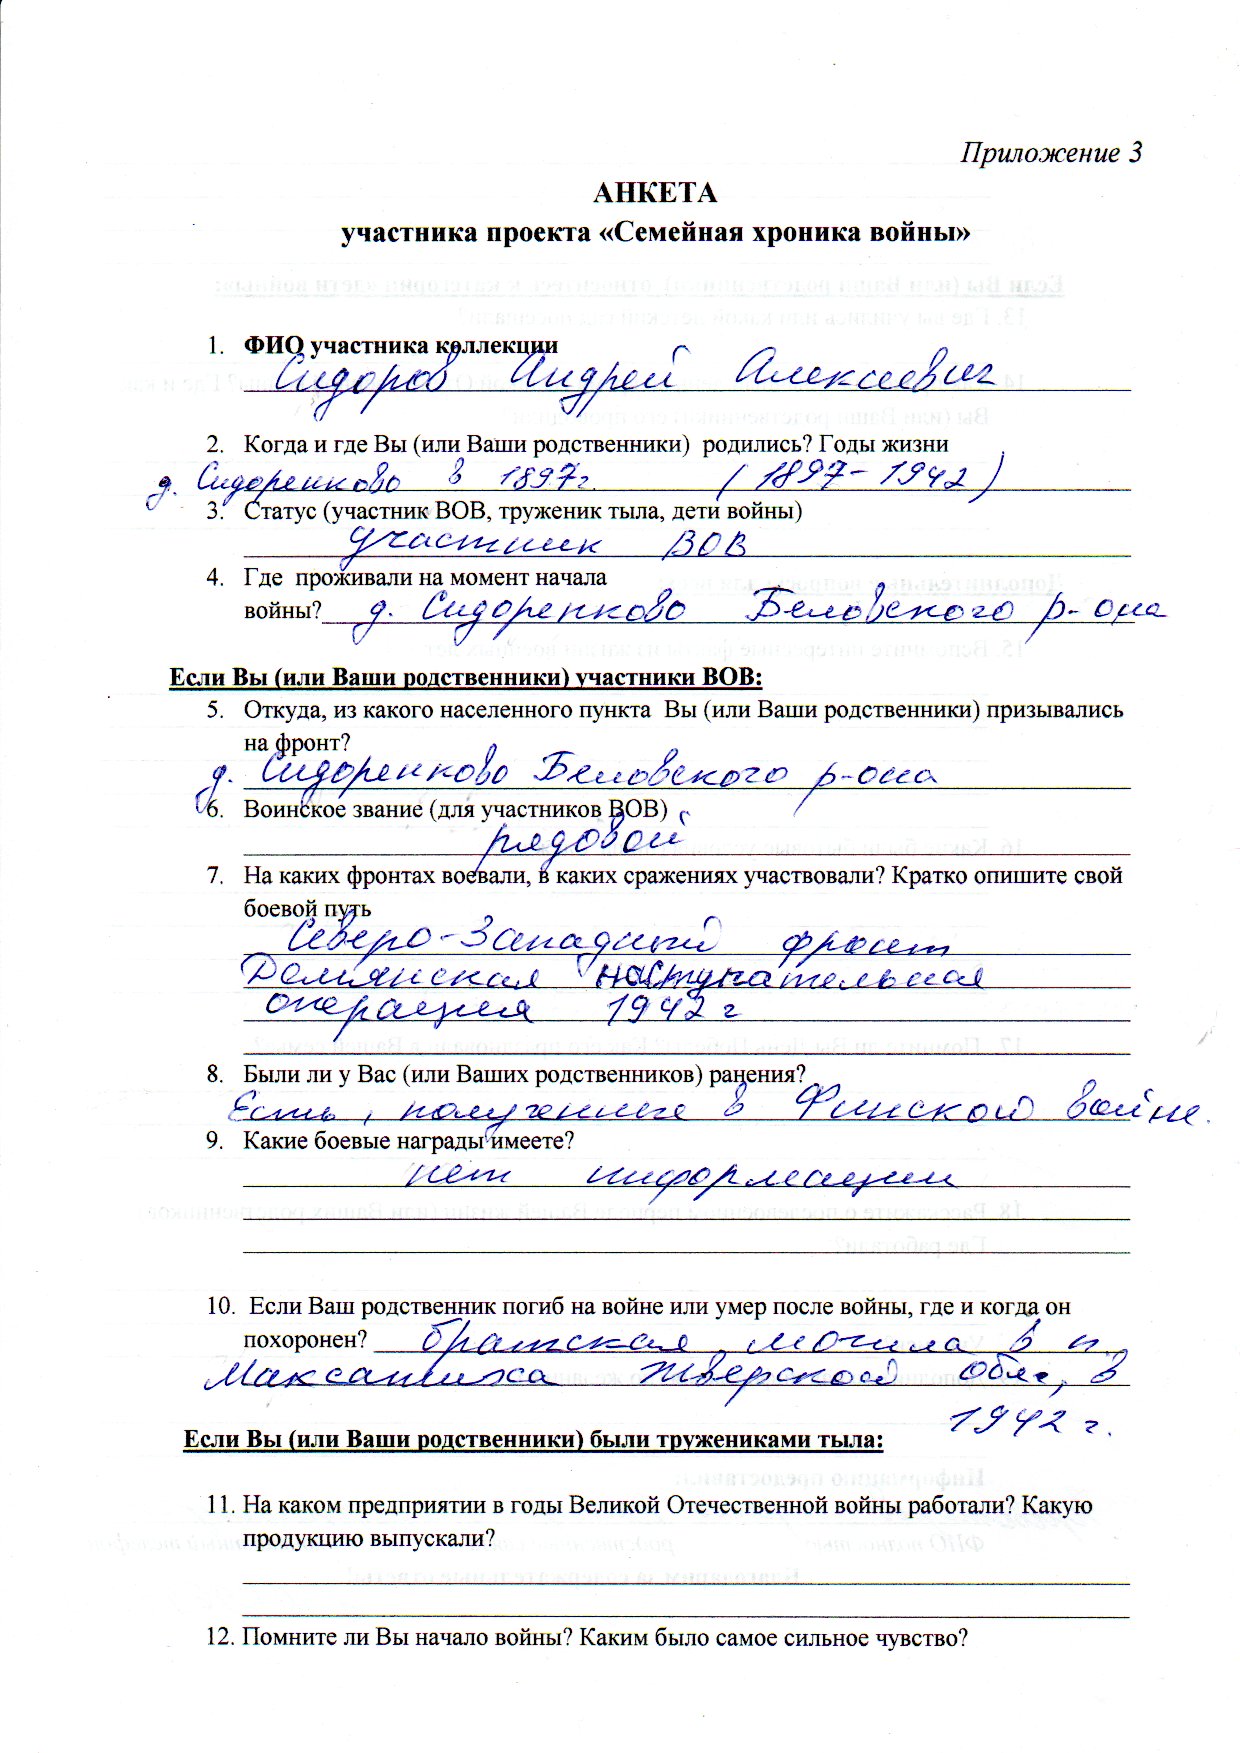 Приложение 3
АНКЕТА
участника проекта «Семейная хроника войны»
1. ФИО участника коллекции
Сидоров Андрей Алексеевич
2. Когда и где Вы (или Ваши родственники) родились? Годы жизни
д. Сидоренково в 1897г. (1897-1942)
3. Статус (участник ВОВ, труженик тыла, дети войны)
участник ВОВ
4. Где проживали на момент начала
войны? д. Сидоренково Беловского р-она
Если Вы (или Ваши родственники) участники ВОВ:
5. Откуда, из какого населенного пункта Вы (или Ваши родственники) призывались
на фронт?
д. Сидоренково Беловского р-она
6. Воинское звание (для участников ВОВ)
рядовой
7. На каких фронтах воевали, в каких сражениях участвовали? Кратко опишите свой
боевой путь
Северо-Западный фронт
Демянская наступательная
операция 1942 г
8. Были ли у Вас (или Ваших родственников) ранения?
Есть, полученные в Финской войне.
9. Какие боевые награды имеете?
нет информации
10. Если Ваш родственник погиб на войне или умер после войны, где и когда он
похоронен? братская могила в п.
Максатиха Тверской обл., в
1942 г.
Если Вы (или Ваши родственники) были тружениками тыла:
11. На каком предприятии в годы Великой Отечественной войны работали? Какую
продукцию выпускали?
12. Помните ли Вы начало войны? Каким было самое сильное чувство?